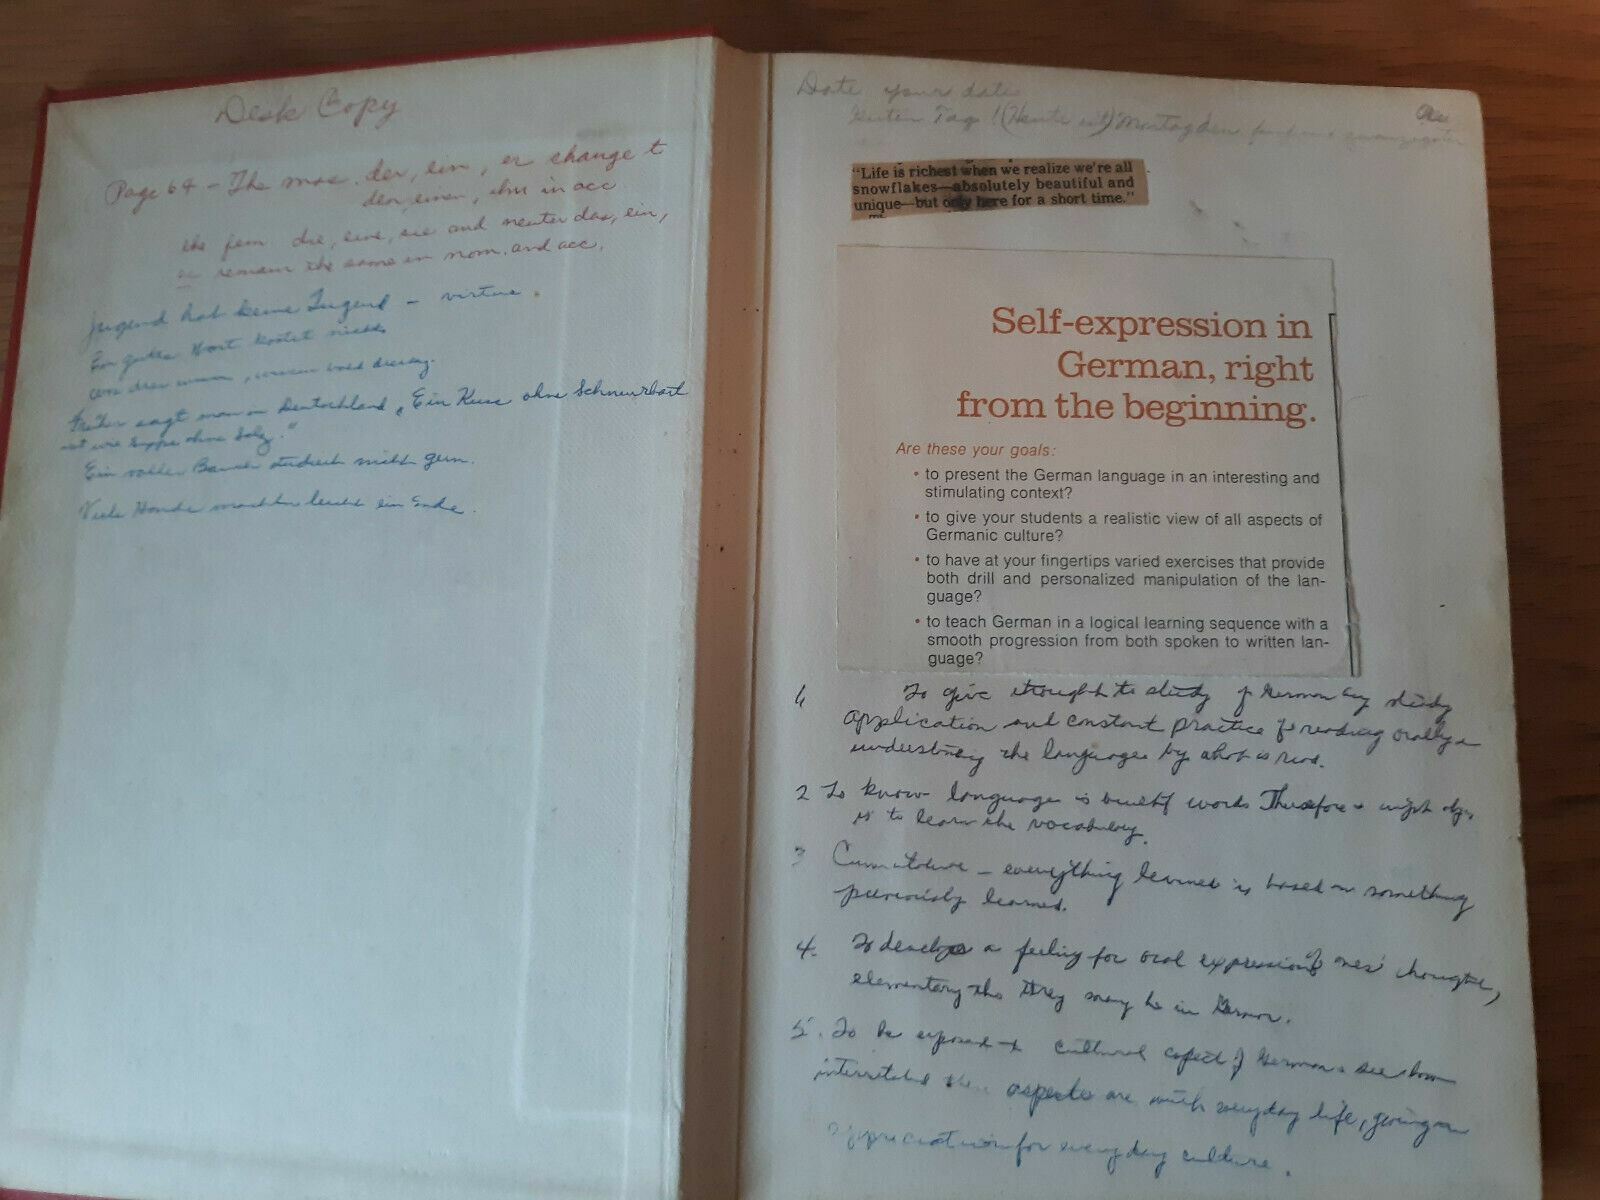 Desk Copy
Page 64 - The mas. der, ein, er change t
den, einen, ihn in acc
the fem die, eine, sie and neuter das, ein,
remain the same in nom. and acc.
Jugend hat keine Tugend - virtue.
Ein gutes Wort kostet nichts
Früher sagt man in Deutschland, "Ein Kuss ohne Schnurrbart
ist wie Suppe ohne Salz."
Ein voller Bauch studiert nicht gern.
Viele Hände machen leicht ein Ende.
Date your date
Guten Tag! (Heute ist) Montag den
"Life is richest when we realize we're all
snowflakes—absolutely beautiful and
unique—but only here for a short time."
Self-expression in
German, right
from the beginning.
Are these your goals:
• to present the German language in an interesting and
stimulating context?
• to give your students a realistic view of all aspects of
Germanic culture?
• to have at your fingertips varied exercises that provide
both drill and personalized manipulation of the lan-
guage?
• to teach German in a logical learning sequence with a
smooth progression from both spoken to written lan-
guage?
1 To give thought to study of German by study
application and constant practice of reading orally &
understanding the languages by what is read.
2 To know language is built of words Therefore
is to learn the vocabulary.
3 Cumulative - everything learned is based on something
previously learned.
4. To develop a feeling for oral expression of ones' thoughts,
elementary tho they may be in German.
5. To be exposed to cultural aspect of German & see how
interrelated these aspects are with everyday life, giving an
appreciation for everyday culture.